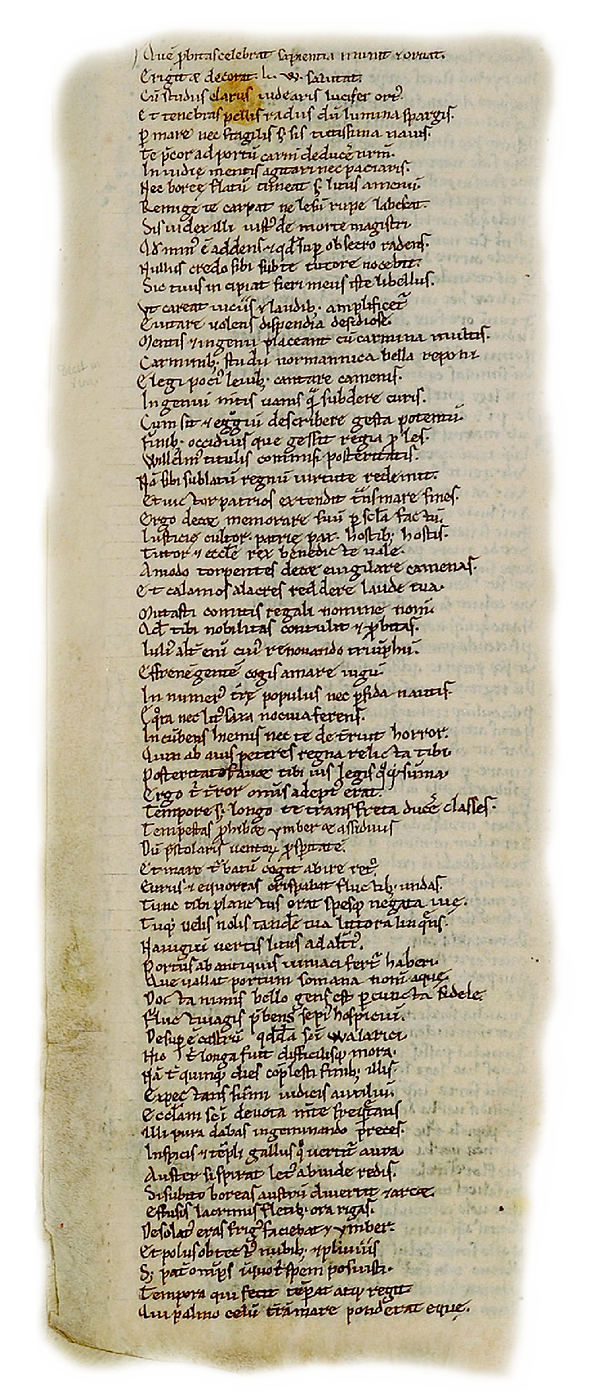 Quē p̄bitas celebrat sapientia munit ⁊ ornat.
Erigit & decorat. L. W. salutat.
Cū studiis clarus uidearis lucifer orb̾.
Et tenebras pellis radiis dū lumina spargis.
P mare nec fragilis s; sis tutissima nauis.
Te p̄cor ad portū carm̄ deducē nr̄m.
Inuidię mentis agitari nec paciaris.
Nec boreę flatū timeat s; litus amenū.
Remige te carpat ne lesū rupe labescat.
Sis iudex illi iust̾ de morte magistri
Qđ min̾ ē addens ⁊ qđ sup̄ obsecro radens.
Nullius credo sibi sub te tutore nocebit.
Sic tuus incipiat fieri meus iste libellus.
Vt careat uiciis ⁊ laudib; amplificet̾
Euitare uolens dispendia desidiosę.
Mentis ⁊ ingenii placeant cū carmina multis.
Carminib; studui normannica bella reponi
Elegi potī leuib; cantare camenis.
Ingeniū mtis uanis q̄ subdere curis.
Cum sit ⁊ egregiū describere gesta potentū
Finib; occiduis que gessit regia p̄les.
Willelmi titulis commisi posteritatis.
Nā sibi sublatū regnū uirtute redemit.
Et uictor patrios extendit tn̄s mare fines.
Ergo decet memorare suū p scl̄a factū.
Iusticię cultor. patrię pax. hostib; hostis.
Tutor ⁊ eccl̄ę rex benedicte uale.
Amodo torpentes decet euigilare camenas.
Et calamos alacres reddere laude tua.
Mutasti comitis regali nomine nom̄
Qđ tibi nobilitas contulit ⁊ p̄bitas.
Iuli̾ alt̄ en̄ cui̾ renouando triūphū.
Effrenē gentē cogis amare iugū
In numer̾ t̄rę populus nec p̄fida nautis.
Eq̄ra nec lit̾ saxa nociua ferens.
Incūbens hiemis nec te det̄ruit horror.
Quin ab auis peteres regna relicta tibi.
Posteritatis auę tibi ius legisq; q; sūma
Ergo t̄ t̄ror omīs adept̾ erat.
Tempore s; longo te transfreta ducē classes.
Tempestas p̄hibet ymber & assiduus
Dū p̄stolaris uentorū p̄speritatē.
Et mare t̾batū cogit abire retro.
Eurus ⁊ equoreas crispabat fluctib; undas.
Tunc tibi planctus erat spesq; negata uię.
Tuq; uelis nolis tandē tua littora linq̄ns.
Nauigiū uertis litus ad alt̾i̾.
Portus ab antiquis uimaci fert̾ haberi.
Que uallat portum somana nom̄ aquę.
Docta nimis bello gens est p̄ cuncta fidelę.
Fluctiuagis p̄bens sepi̾ hospiciū.
Desup̄ ē castrū qđdā sc̄i walarici
Hic t̄ longa fuit difficilisq; mora.
Nā t̄ quinq; dies cōplesti finib; illis.
Expectans sūmi iudicis auxiliū
Ecclam sc̄i deuota mte freq̄ntans
Illi pura dabas ingeminando preces.
Inspicis ⁊ tēpli gallus q̄ uertit̾ aura
Auster si spirat let̾ abinde redis.
Si subito boreas austrū diuertit ⁊ arcet.
Effusis lacrimis fletib; ora rigas.
Desolat̾ eras frig̾ faciebat ⁊ ymber.
Et polus obtect̾ nubib; ⁊ pluuiis
S; pat̄ om̄ps in quo t̾ spem posuisti.
Tempora qui fecit tēp̄at atq; regit
Qui palmo celū t̄rā mare ponderat equę.